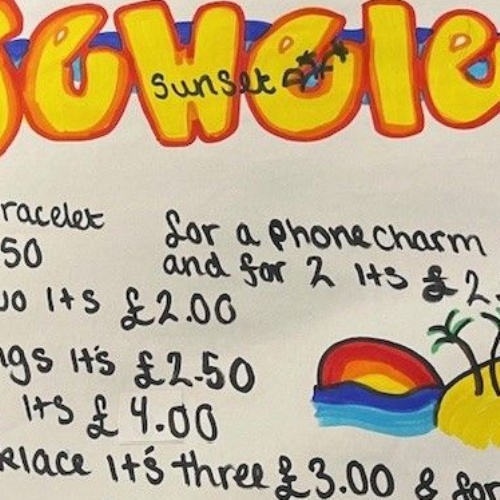 Jewele
sunset
racelet
50
wo it's £2.00
ngs it's £2.50
it's £4.00
klace it's three £3.00 & for
for a phone charm
and for 2 it's £2.